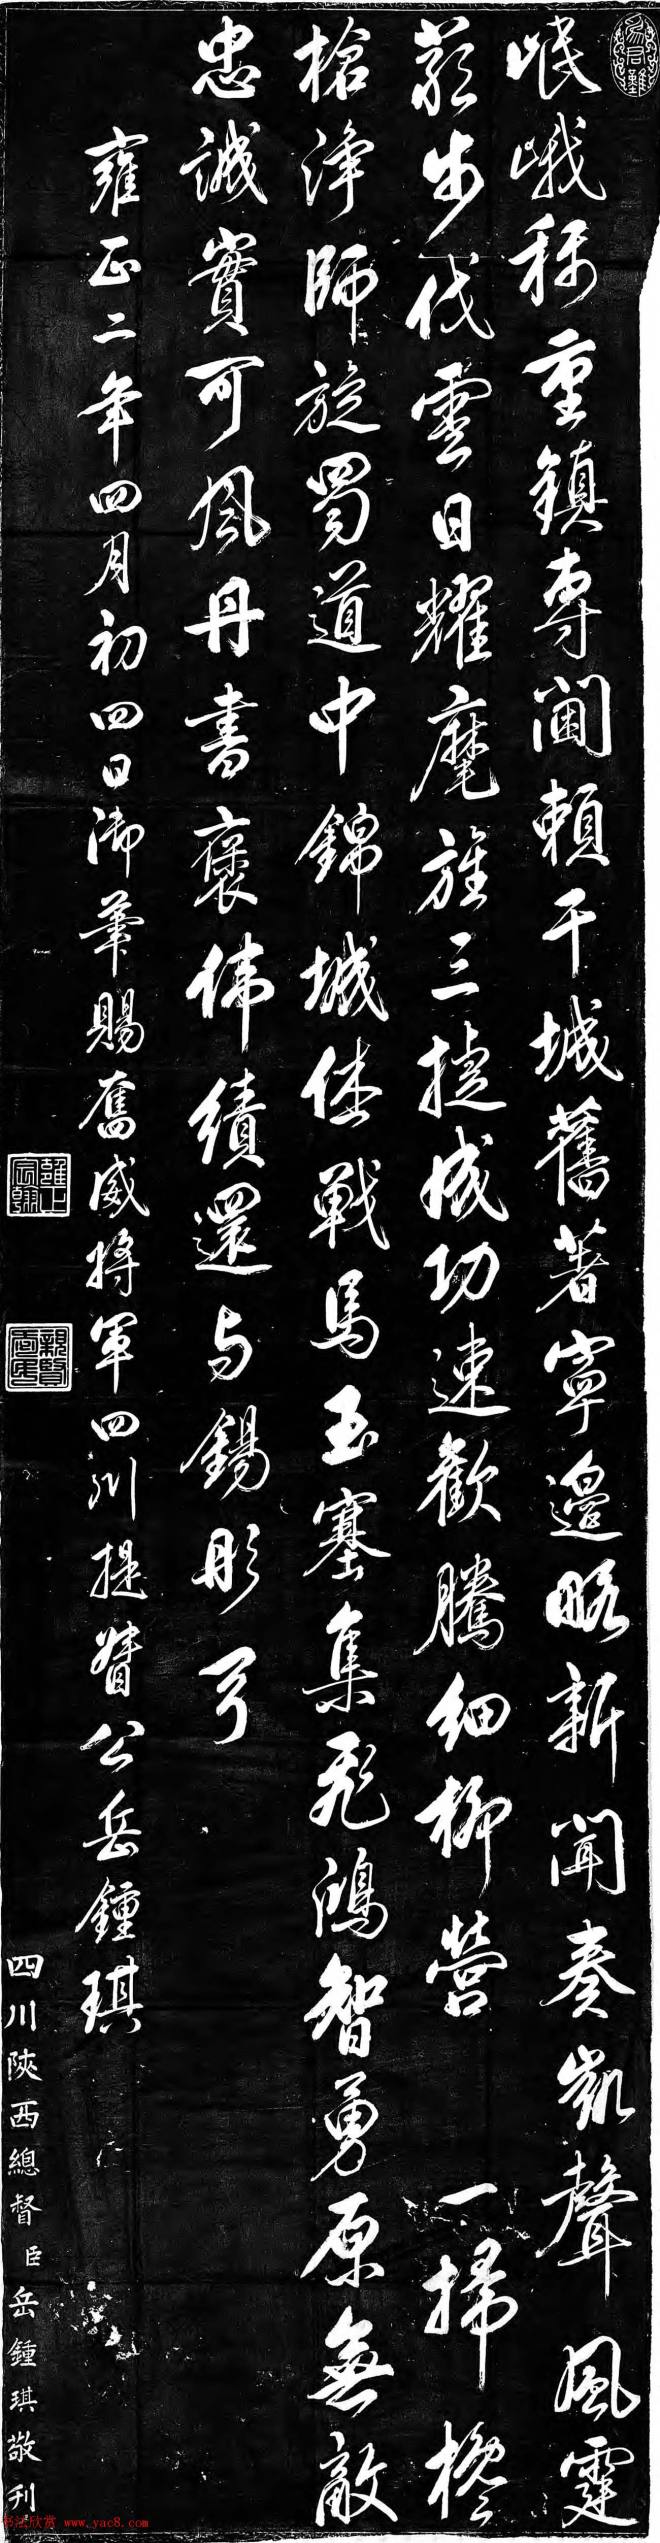 岷峨稱重鎮專閫賴干城舊著寧邊略新聞奏凱聲風霆
嚴步伐雲日耀麾旌三捷成功速歡騰細柳營 一掃欃
槍淨師旋蜀道中錦城休戰馬玉塞集飛鴻智勇原無敵
忠誠實可風丹書褒偉績還與錫彤弓
雍正二年四月初四日御筆賜奮威將軍四川提督公岳鍾琪
雍正宸翰
親賢愛民
四川陝西總督臣岳鍾琪敬刊
书法欣赏 www.yac8.com